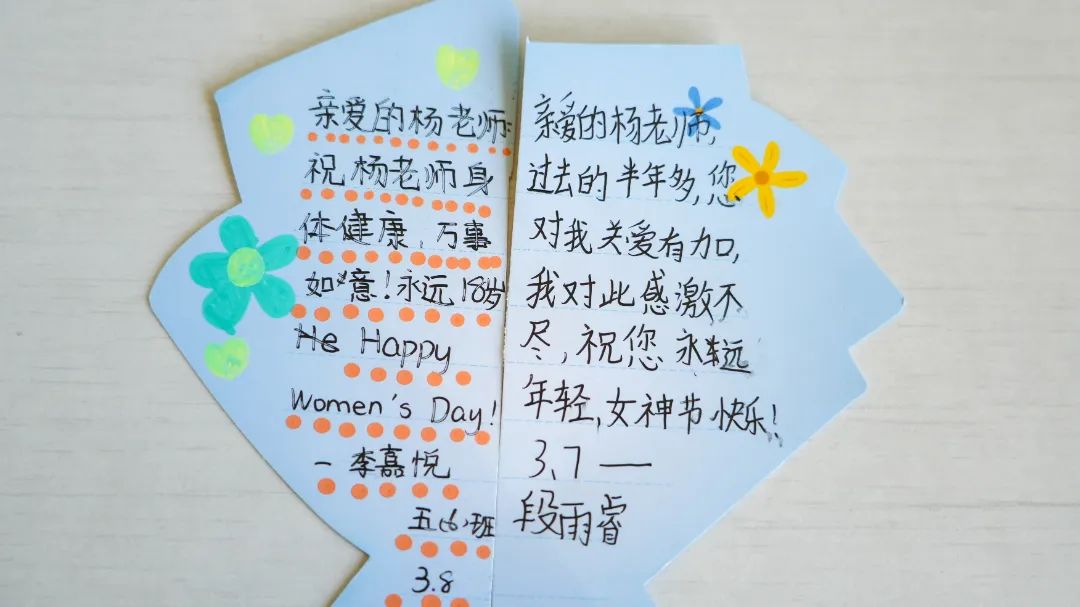 亲爱的杨老师:
祝杨老师身
体健康,万事
如意!永远18岁
He Happy
Women's Day!
- 李嘉悦
五(6)班
3.8
亲爱的杨老师,
过去的半年多,您
对我关爱有加,
我对此感激不
尽,祝您永远
年轻,女神节快乐!
3.7 —
段雨睿